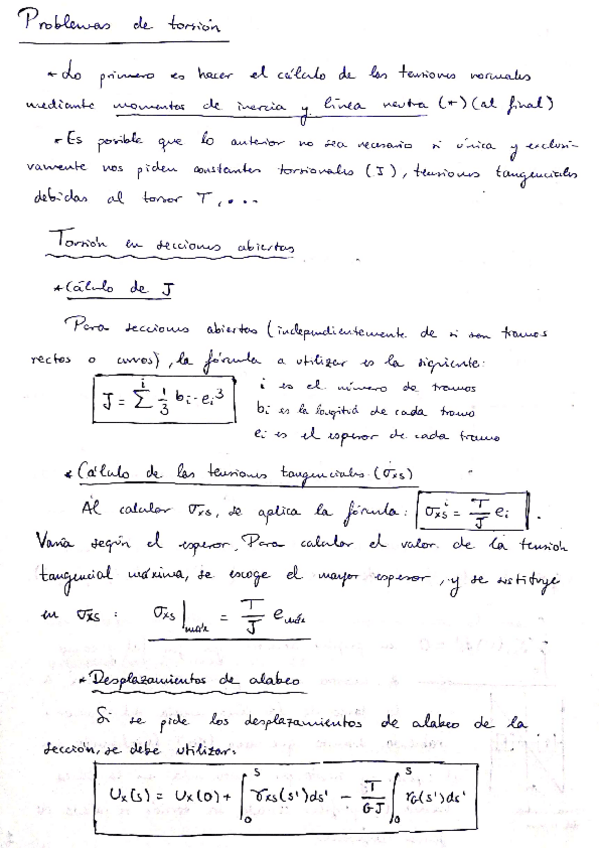 Problemas de torsión
* Lo primero es hacer el cálculo de las tensiones normales
mediante momentos de inercia y línea neutra (*) (al final)
* Es posible que lo anterior no sea necesario si única y exclusi-
vamente nos piden constantes torsionales (J), tensiones tangenciales
debidas al torsor T, ...
Torsión en secciones abiertas
* Cálculo de J
Para secciones abiertas (independientemente de si son tramos
rectos o curvos), la fórmula a utilizar es la siguiente:
J = Σ^i 1/3 b_i · e_i^3
i es el número de tramos
b_i es la longitud de cada tramo
e_i es el espesor de cada tramo
* Cálculo de las tensiones tangenciales (σ_xs)
Al calcular σ_xs, se aplica la fórmula: σ_xs^i = T/J e_i .
Varía según el espesor. Para calcular el valor de la tensión
tangencial máxima, se escoge el mayor espesor, y se sustituye
en σ_xs : σ_xs|_máx = T/J e_máx
* Desplazamientos de alabeo
Si se pide los desplazamientos de alabeo de la
sección, se debe utilizar:
U_x(s) = U_x(0) + ∫_0^s γ_xs(s')ds' - T/GJ ∫_0^s r_G(s')ds'